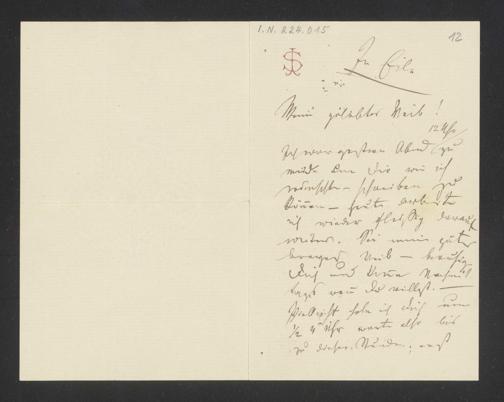 I.N. 224.015
12
JS
In Eile
Mein geliebtes Weib!
12 Uhr
Ich war gestern Abend zu
müde um Dir wie ich
wünschte – schreiben zu
können – heute arbeite
ich wieder fleißig darauf
weiter. Sei mein gutes
braves Weib –
Dich und komme Nachmit
tags wenn Du willst. –
Vielleicht hole ich Dich um
½ 4 Uhr warte also bis
zu dieser Stunde,